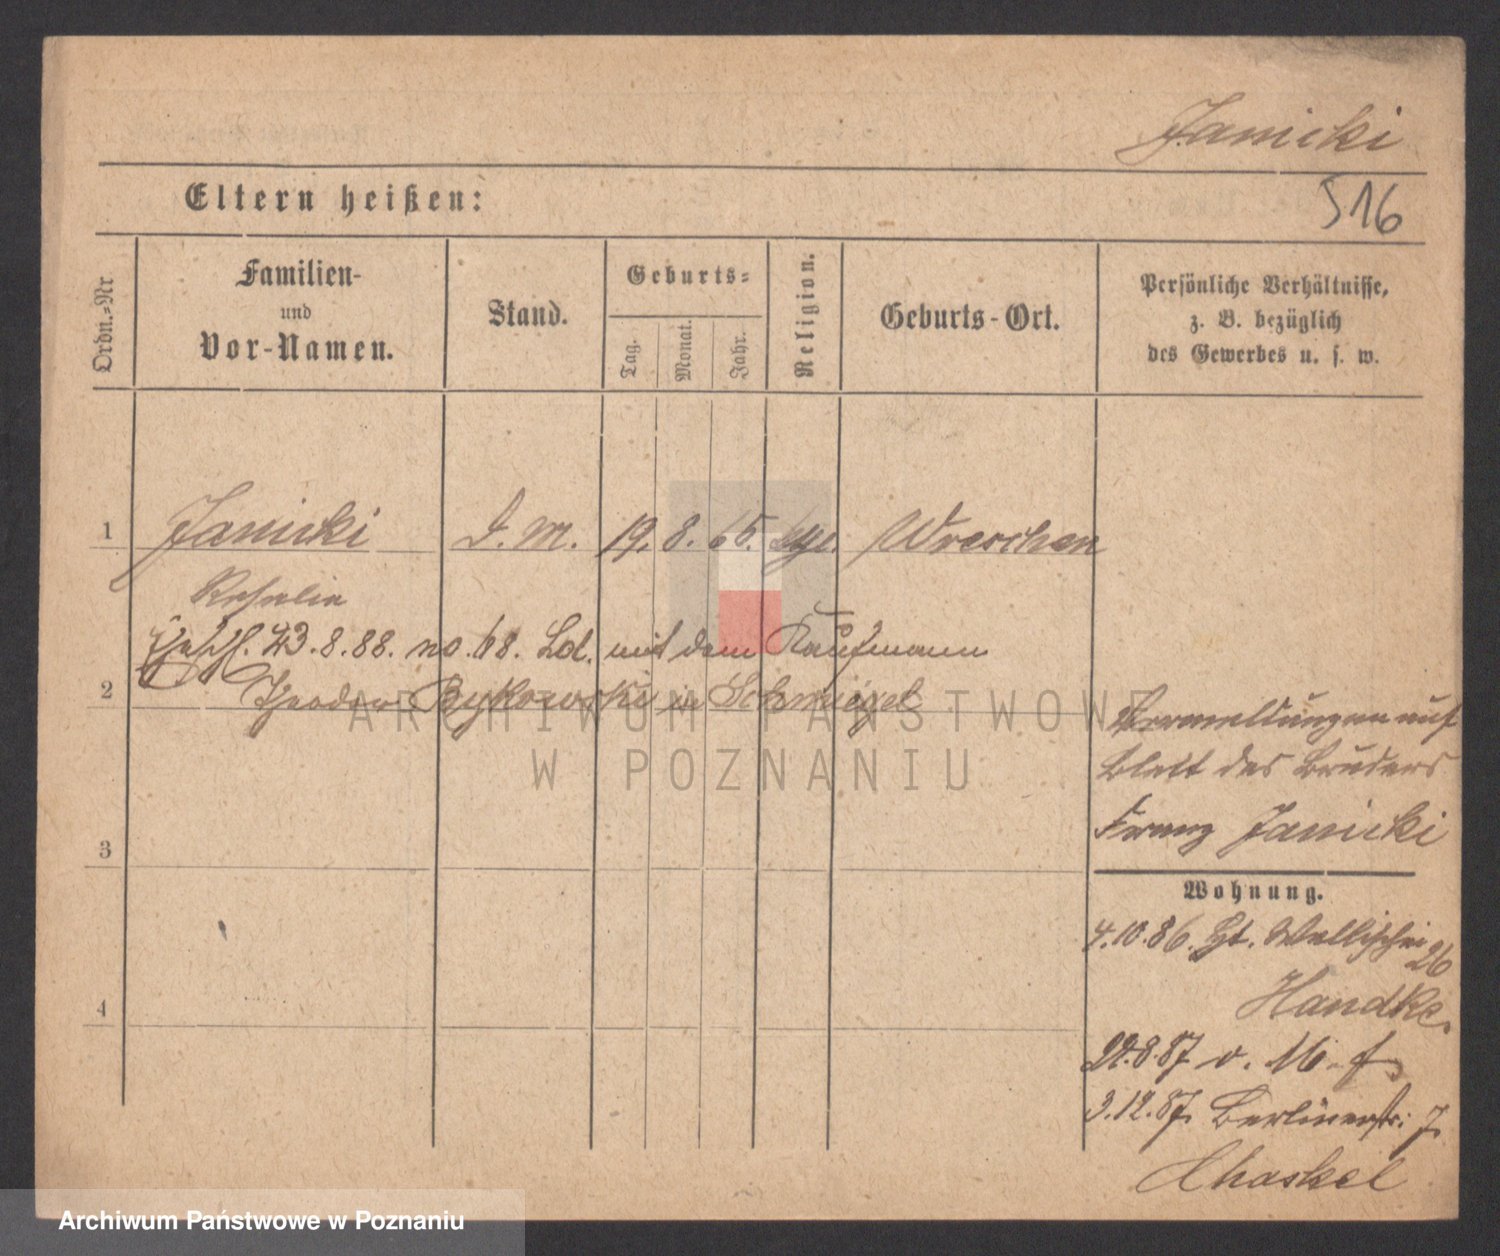 Janicki
Eltern heißen:
516
Ordn.-Nr
Familien-
und
Vor-Namen.
Stand.
Geburts-
Tag.
Monat.
Jahr.
Religion.
Geburts-Ort.
Persönliche Verhältnisse,
z. B. bezüglich
des Gewerbes u. s. w.
1 Janicki D. M. 19. 8. 65. Wreschen
Rosalie
23.8.88. no. 68. Ld. mit dem Kaufmann
2 Theodor Bykowski in Schmiegel
ARCHIWUM PAŃSTWOWE
W POZNANIU
Vermeldungen auf
Blatt des Bruders
Franz Janicki
3
Wohnung.
4.10.86. Wallischei 26
Handke.
4
22.8.87 v. M.
3.12.87. Berlinerstr. 7.
Chaskel
Archiwum Państwowe w Poznaniu